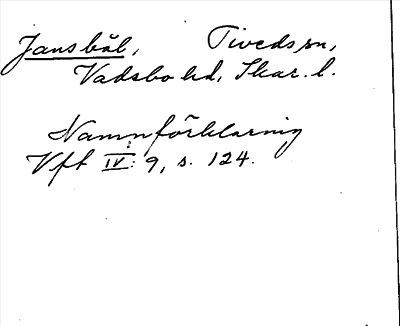 Jansbål, Tiveds sn,
Vadsbo hd, Skar. l.
Namnförklaring
Vft IV: 9, s. 124.